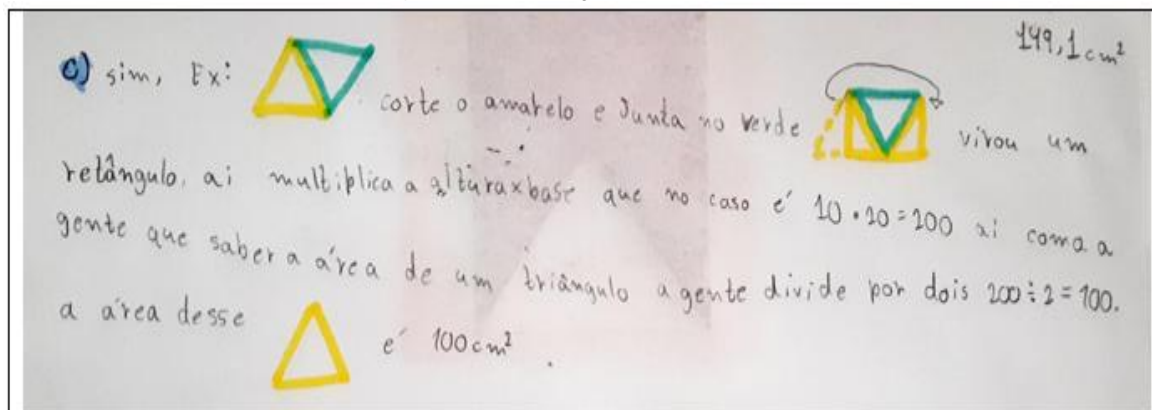 149,1cm²
c) sim, Ex: corte o amarelo e Junta no verde virou um
retângulo, ai multiplica a alturaxbase que no caso é 10•20=200 ai como a
gente que saber a área de um triângulo a gente divide por dois 200÷2=100.
a área desse é 100cm².